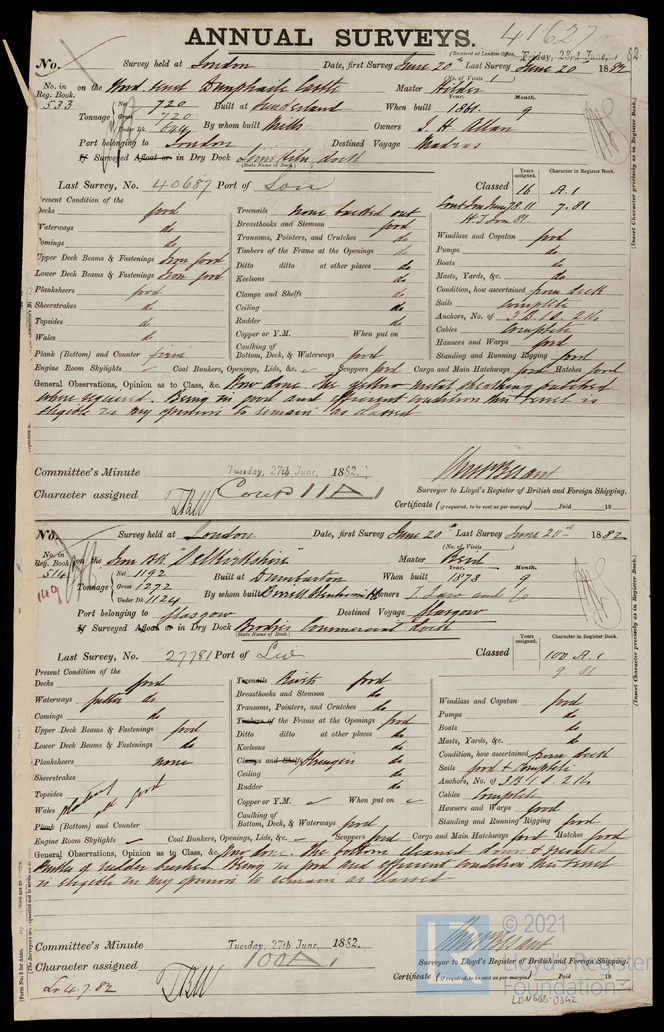 41627
ANNUAL SURVEYS.
(Received at London Office, Friday, 23rd June, 82
No. Survey held at London Date, first Survey June 20th Last Survey June 20 1882
(No. of Visits 1)
No. in Reg. Book 533 on the Dunphaile Castle Master Wilder
Tonnage Net 720 Built at Sunderland When built Year. 1861. Month. 9
Gross 720
Under Dk. By whom built Mills Owners J. H. Allan
Port belonging to London Destined Voyage Madras
If Surveyed Afloat or in Dry Dock Limekiln dock
(State Name of Dock.)
Last Survey, No. 40687 Port of Lon Classed Years assigned. 16 Character in Register Book. A.1
7.81
(Insert Character precisely as in Register Book.)
Present Condition of the
Decks good
Waterways do
Comings do
Upper Deck Beams & Fastenings Iron good
Lower Deck Beams & Fastenings Iron good
Planksheers good
Sheerstrakes do
Topsides do
Wales do
Plank (Bottom) and Counter
Treenails none backed out
Breasthooks and Stemson good
Transoms, Pointers, and Crutches do
Timbers of the Frame at the Openings do
Ditto ditto at other places do
Keelsons do
Clamps and Shelfs do
Ceiling do
Rudder do
Copper or Y.M. When put on
Caulking of Bottom, Deck, & Waterways good
Windlass and Capstan good
Pumps do
Boats do
Masts, Yards, &c. do
Condition, how ascertained from deck
Sails complete
Anchors, No. of 3 B. 1 S. 2 K
Cables Complete
Hawsers and Warps good
Standing and Running Rigging good
Engine Room Skylights Coal Bunkers, Openings, Lids, &c. Scuppers good Cargo and Main Hatchways good Hatches good
General Observations, Opinion as to Class, &c. Now done. The yellow metal sheathing patched
where required. Being in good and efficient condition this vessel is
eligible in my opinion to remain as classed
Committee's Minute Tuesday, 27th June, 1882.
Character assigned
Surveyor to Lloyd's Register of British and Foreign Shipping.
Certificate (if required, to be sent as per margin) Paid 18
No. Survey held at London Date, first Survey June 20th Last Survey June 20th 1882
(No. of Visits )
No. in Reg. Book 514 on the Iron Bk "Selkirkshire" Master Reid
149
Tonnage Net 1192 Built at Dumbarton When built Year. 1873 Month. 9
Gross 1222
Under Dk. 1124 By whom built Owners T. Law and Co
Port belonging to Glasgow Destined Voyage Glasgow
If Surveyed Afloat or in Dry Dock Brodies Commercial dock
(State Name of Dock.)
Last Survey, No. 27781 Port of Liv Classed Years assigned. Character in Register Book. 100 A.1
9 81
(Insert Character precisely as in Register Book.)
Present Condition of the
Decks good
Waterways gutter do
Comings do
Upper Deck Beams & Fastenings good
Lower Deck Beams & Fastenings do
Planksheers none
Sheerstrakes
Topsides
Wales plating good
Plank (Bottom) and Counter
Treenails Rivets good
Breasthooks and Stemson do
Transoms, Pointers, and Crutches do
Timbers of the Frame at the Openings good
Ditto ditto at other places do
Keelsons do
Clamps and Shelfs Stringers do
Ceiling do
Rudder do
Copper or Y.M. When put on
Caulking of Bottom, Deck, & Waterways good
Windlass and Capstan good
Pumps do
Boats do
Masts, Yards, &c. do
Condition, how ascertained from deck
Sails good & Complete
Anchors, No. of 3 B. 1 S. 2 K
Cables Complete
Hawsers and Warps good
Standing and Running Rigging good
Engine Room Skylights Coal Bunkers, Openings, Lids, &c. Scuppers good Cargo and Main Hatchways good Hatches good
General Observations, Opinion as to Class, &c. Now done. The bottom cleaned down & coated
Pintles of rudder bushed. Being in good and efficient condition this vessel
is eligible in my opinion to remain as classed
Committee's Minute Tuesday, 27th June, 1882.
Character assigned 100A1
Surveyor to Lloyd's Register of British and Foreign Shipping.
Certificate (if required, to be sent as per margin) Paid 18
Lr 4.7.82
LR © 2021
Lloyd's Register
Foundation
LON668-0342